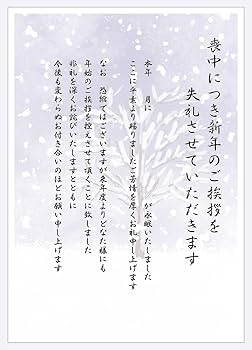 喪中につき新年のご挨拶を
失礼させていただきます
本年　月に　　　　が永眠いたしました
ここに平素より賜りましたご芳情を厚くお礼申し上げます
なお　恐縮ではございますが来年度よりどなた様にも
年始のご挨拶を控えさせて頂くことに致しました
非礼を深くお詫びいたしますとともに
今後も変わらぬお付き合いのほどお願い申し上げます